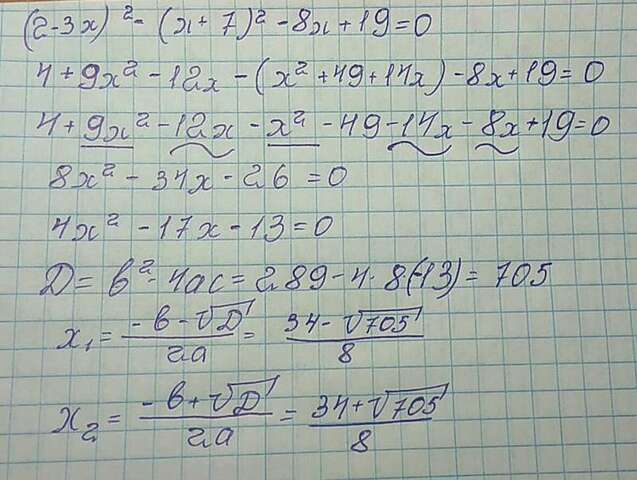 (2-3x)² - (x+7)² - 8x + 19 = 0
4 + 9x² - 12x - (x² + 49 + 14x) - 8x + 19 = 0
4 + 9x² - 12x - x² - 49 - 14x - 8x + 19 = 0
8x² - 34x - 26 = 0
4x² - 17x - 13 = 0
D = b² - 4ac = 289 - 4·8(-13) = 705
x₁ = (-b - √D)/2a = (34 - √705)/8
x₂ = (-b + √D)/2a = (34 + √705)/8